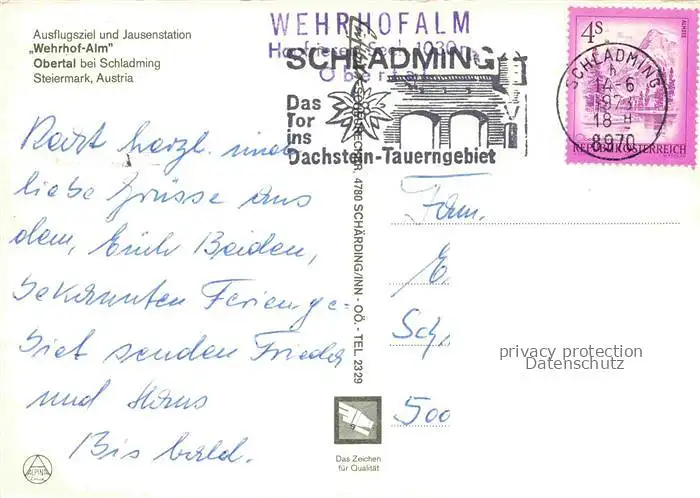 Ausflugsziel und Jausenstation
„Wehrhof-Alm"
Obertal bei Schladming
Steiermark, Austria
WEHRHOFALM
1030 m
Obertal
SCHLADMING
Das
Tor
ins
Dachstein-Tauerngebiet
4S
SCHLADMING
18 H
8970
REPUBLIK ÖSTERREICH
Recht herzl. und
liebe Grüsse aus
dem, Euch Beiden,
bekannten Ferienge=
biet senden Frieder
und Hans
Bis bald.
4780 SCHÄRDING/INN - OÖ. - TEL. 2329
Fam.
E
Sch
500
privacy protection
Datenschutz
Das Zeichen
für Qualität
ALPINA